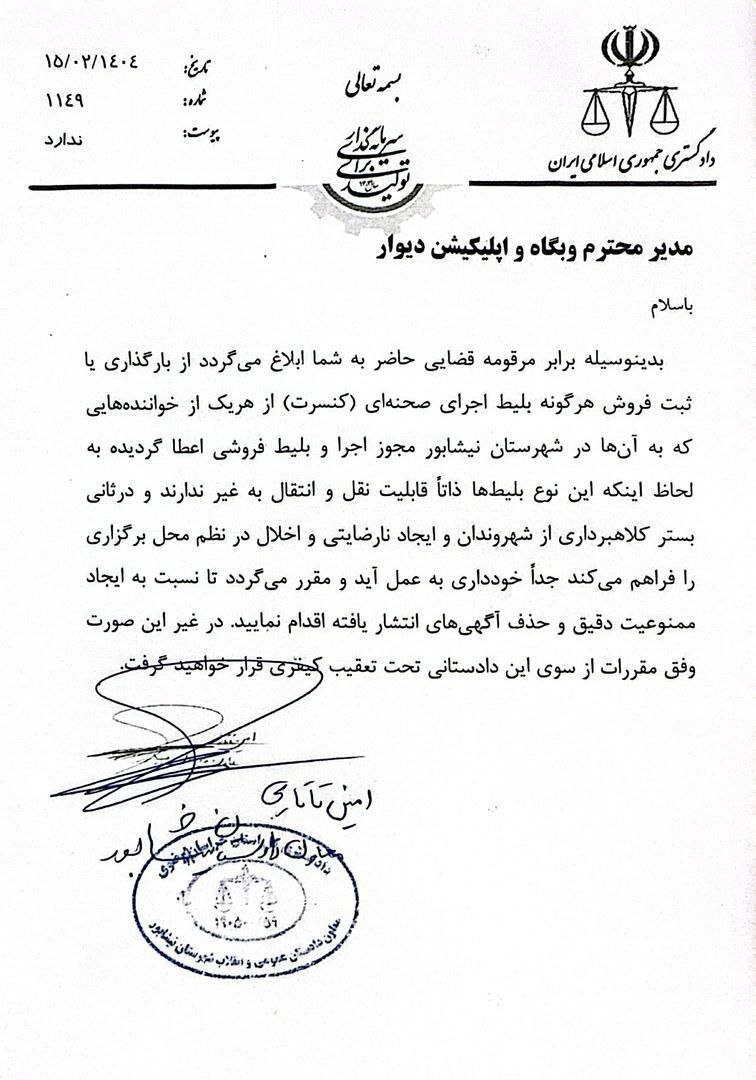 دادگستری جمهوری اسلامی ایران
بسمه تعالی
سرمایه‌گذاری
برای
تولید
تاریخ: ۱۵/۰۲/۱۴۰۴
شماره: ۱۱۴۹
پیوست: ندارد
مدیر محترم وبگاه و اپلیکیشن دیوار
باسلام
بدینوسیله برابر مرقومه قضایی حاضر به شما ابلاغ می‌گردد از بارگذاری یا
ثبت فروش هرگونه بلیط اجرای صحنه‌ای (کنسرت) از هریک از خواننده‌هایی
که به آن‌ها در شهرستان نیشابور مجوز اجرا و بلیط فروشی اعطا گردیده به
لحاظ اینکه این نوع بلیط‌ها ذاتاً قابلیت نقل و انتقال به غیر ندارند و درثانی
بستر کلاهبرداری از شهروندان و ایجاد نارضایتی و اخلال در نظم محل برگزاری
را فراهم می‌کند جداً خودداری به عمل آید و مقرر می‌گردد تا نسبت به ایجاد
ممنوعیت دقیق و حذف آگهی‌های انتشار یافته اقدام نمایید. در غیر این صورت
وفق مقررات از سوی این دادستانی تحت تعقیب کیفری قرار خواهید گرفت.
معاون دادستان عمومی و انقلاب شهرستان نیشابور